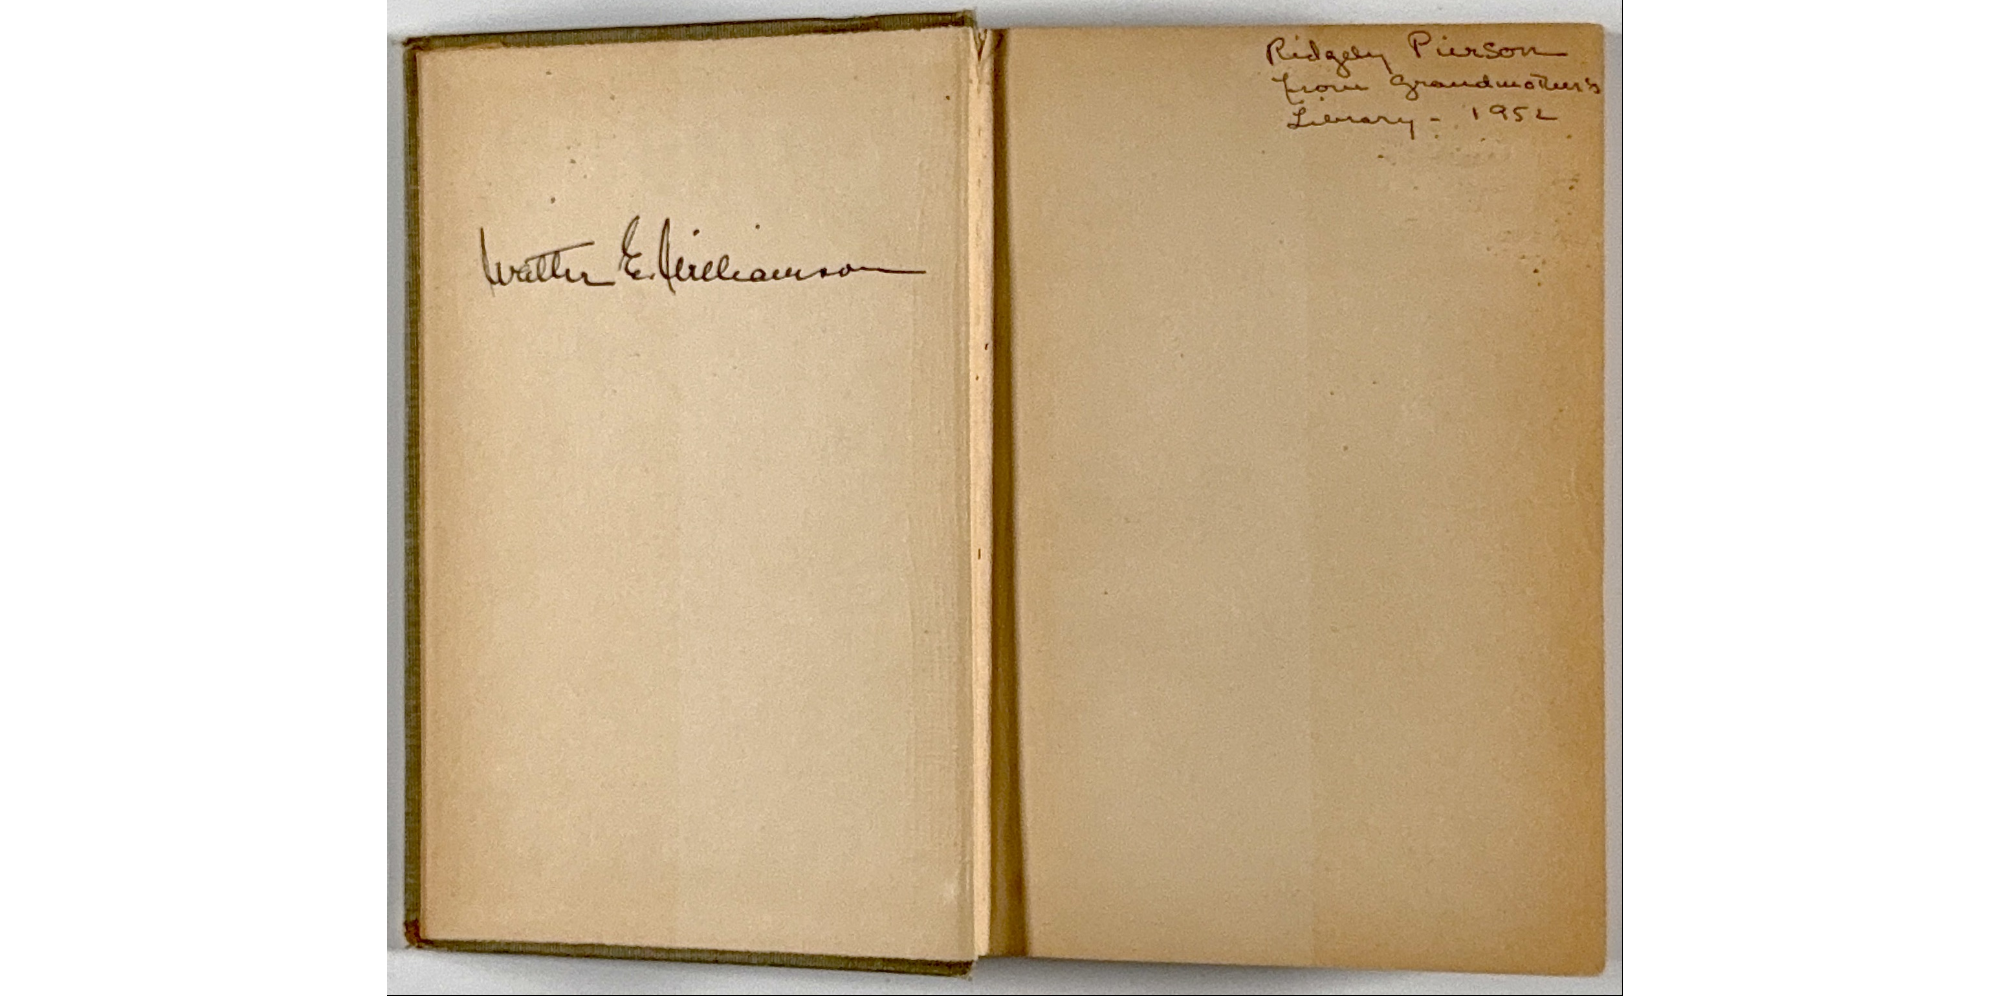 Walter E. Williamson
Ridgely Pierson
from Grandmother's
Library - 1952